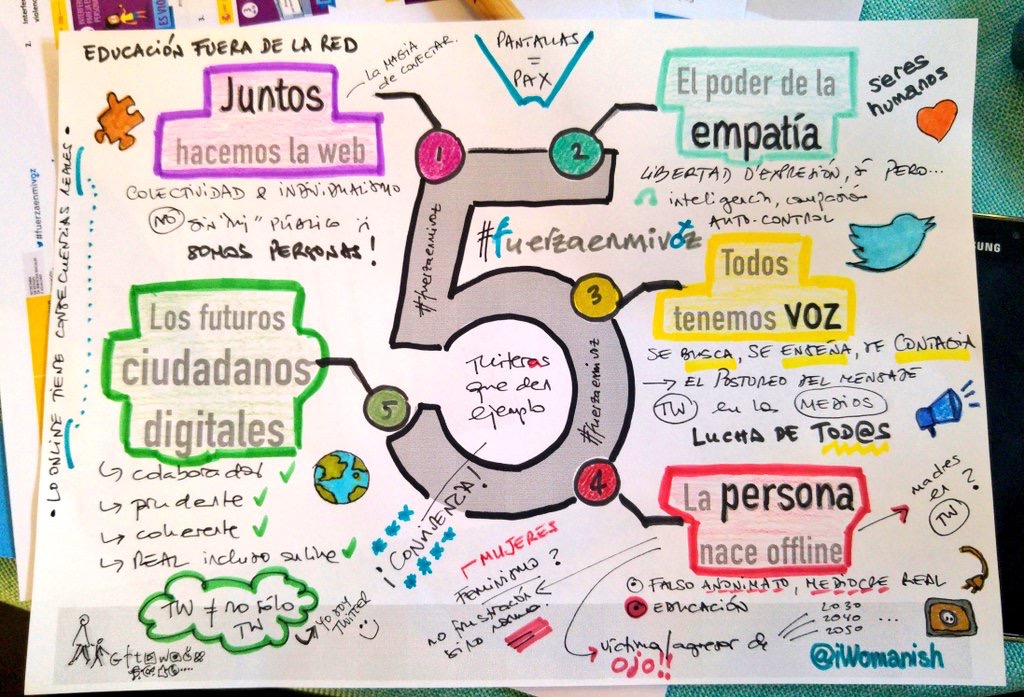 EDUCACIÓN FUERA DE LA RED
LA MAGIA
de CONECTAR.
PANTALLAS
=
PAX
Juntos
hacemos la web
1
COLECTIVIDAD & INDIVIDUALISMO
NO sin "mi" PÚBLICO
SOMOS PERSONAS!
· LO ONLINE TIENE CONSECUENCIAS REALES ·
2
El poder de la
empatía
seres
humanos
LIBERTAD D'EXPRESIÓN, sí PERO...
inteligencia, compasión
AUTO-CONTROL
#fuerzaenmivoz
#fuerzaenmivoz
#fuerzaenmivoz
3
Todos
tenemos VOZ
SE BUSCA, SE ENSEÑA, SE CONTAGIA
→ EL POSTUREO DEL MENSAJE
TW en los MEDIOS
LUCHA DE TOD@S
SUNG
Tuiteras
que den
ejemplo
¡CONVIVENCIA!
4
La persona
nace offline
madres
en ?
TW
FALSO ANONIMATO, MEDIOCRE REAL
EDUCACIÓN
2030
2040 ...
2050
víctima/agresor de
OJO!!
MUJERES
FEMINISMO?
no FRUSTRACIÓN
sino
5
Los futuros
ciudadanos
digitales
colaborador ✓
prudente ✓
coherente ✓
REAL incluso online ✓
TW ≠ no sólo
TW
YO SOY
TWITTER
@iWomanish
#fuerzaenmivoz